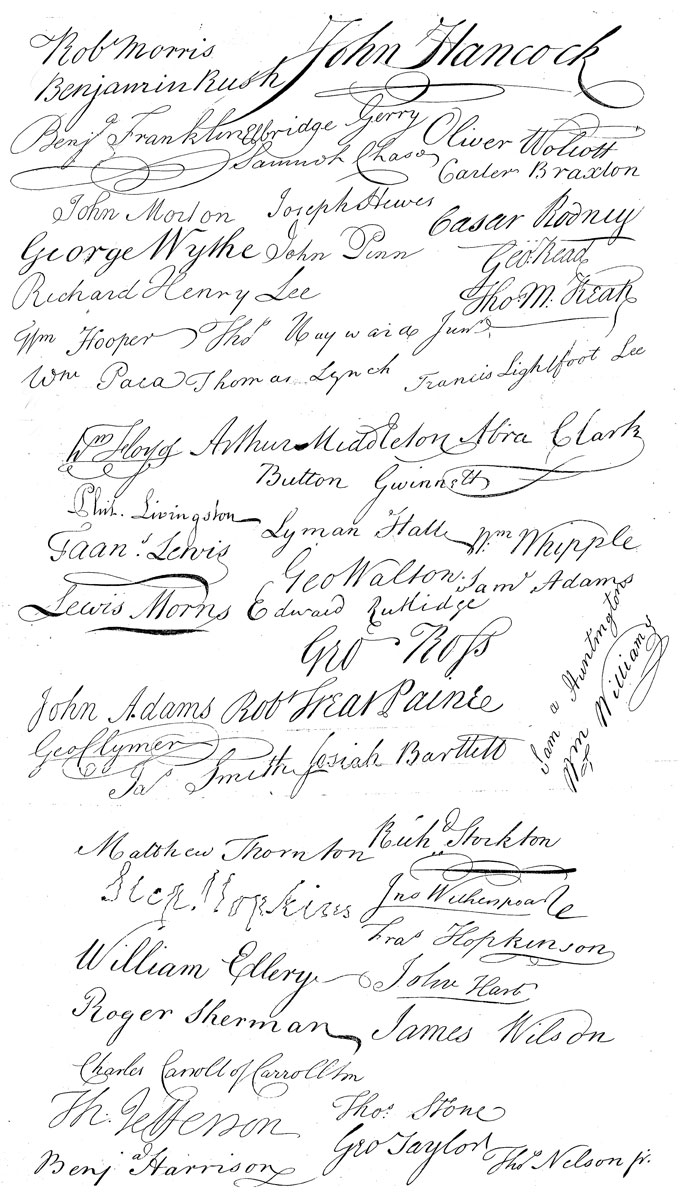 Rob^t Morris John Hancock
Benjamin Rush
Benj^a Franklin Elbridge Gerry Oliver Wolcott
Samuel Chase Carter Braxton
John Morton Joseph Hewes Cæsar Rodney
George Wythe John Penn Geo Read
Richard Henry Lee Tho^s M. Kean
W^m Hooper Tho^s Hayward Jun^r.
W^m Paca Thomas Lynch Francis Lightfoot Lee
W^m Floyd Arthur Middleton Abra Clark
Button Gwinnett
Phil. Livingston Lyman Hall W^m Whipple
Fran^s. Lewis
Geo Walton. Sam^l Adams
Lewis Morris Edward Rutledge
Geo Ross
Sam^l Huntington
W^m Williams
John Adams Rob^t Treat Paine
Geo Clymer
Ja^s Smith Josiah Bartlett
Matthew Thornton Rich^d Stockton
Step. Hopkins Jno Witherspoon
Fra^s Hopkinson
William Ellery John Hart
Roger Sherman James Wilson
Charles Carroll of Carrollton
Th. Jefferson Tho^s. Stone
Geo Taylor
Benj^a Harrison Tho^s Nelson jr.